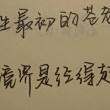 生最初的苍老
境界是经得起